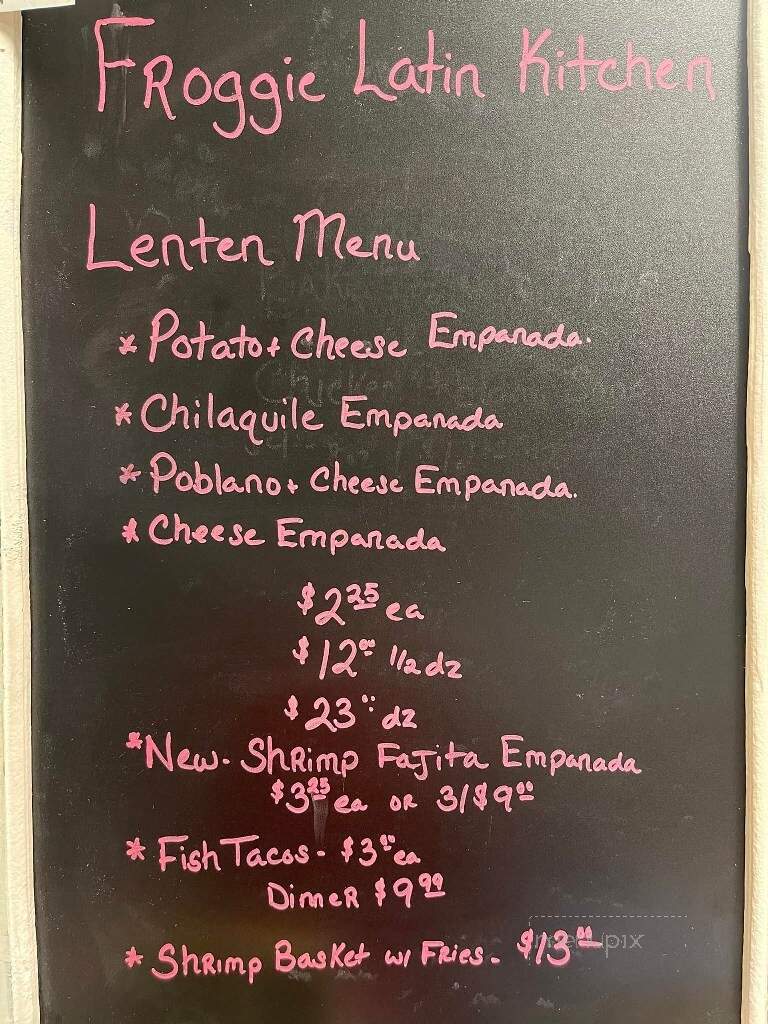 Froggie Latin Kitchen
Lenten Menu
* Potato + Cheese Empanada.
* Chilaquile Empanada
* Poblano + Cheese Empanada.
* Cheese Empanada
$2.25 ea
$12.00 1/2 dz
$23.00 dz
* New - Shrimp Fajita Empanada
$3.25 ea or 3/$9.00
* Fish Tacos - $3.00 ea
Dinner $9.99
* Shrimp Basket w/ Fries - $13.00